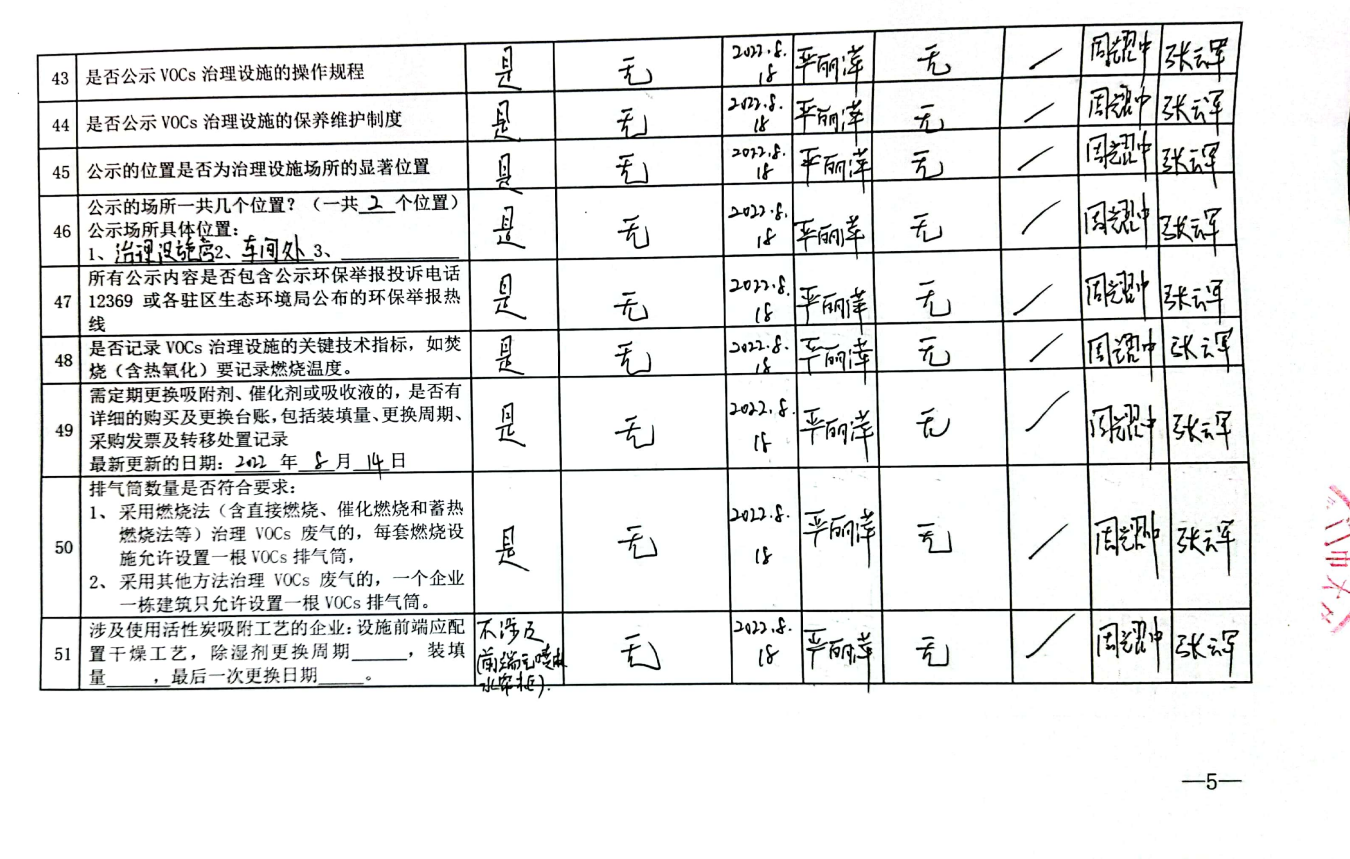 43 是否公示 VOCs 治理设施的操作规程 是 无 2022.8.18 严丽萍 无 / 周耀中 张云军
44 是否公示 VOCs 治理设施的保养维护制度 是 无 2022.8.18 严丽萍 无 / 周耀中 张云军
45 公示的位置是否为治理设施场所的显著位置 是 无 2022.8.18 严丽萍 无 / 周耀中 张云军
46 公示的场所一共几个位置?(一共 2 个位置)
公示场所具体位置:
1、治理设施旁2、车间外 3、______ 是 无 2022.8.18 严丽萍 无 / 周耀中 张云军
47 所有公示内容是否包含公示环保举报投诉电话
12369 或各驻区生态环境局公布的环保举报热
线 是 无 2022.8.18 严丽萍 无 / 周耀中 张云军
48 是否记录 VOCs 治理设施的关键技术指标,如焚
烧(含热氧化)要记录燃烧温度。 是 无 2022.8.18 严丽萍 无 / 周耀中 张云军
49 需定期更换吸附剂、催化剂或吸收液的,是否有
详细的购买及更换台账,包括装填量、更换周期、
采购发票及转移处置记录
最新更新的日期:2022 年 8 月 14 日 是 无 2022.8.18 严丽萍 无 / 周耀中 张云军
50 排气筒数量是否符合要求:
1、采用燃烧法(含直接燃烧、催化燃烧和蓄热
燃烧法等)治理 VOCs 废气的,每套燃烧设
施允许设置一根 VOCs 排气筒,
2、采用其他方法治理 VOCs 废气的,一个企业
一栋建筑只允许设置一根 VOCs 排气筒。 是 无 2022.8.18 严丽萍 无 / 周耀中 张云军
51 涉及使用活性炭吸附工艺的企业:设施前端应配
置干燥工艺,除湿剂更换周期_____,装填
量_____,最后一次更换日期_____。 不涉及(前端无喷淋水帘柜). 无 2022.8.18 严丽萍 无 / 周耀中 张云军
—5—